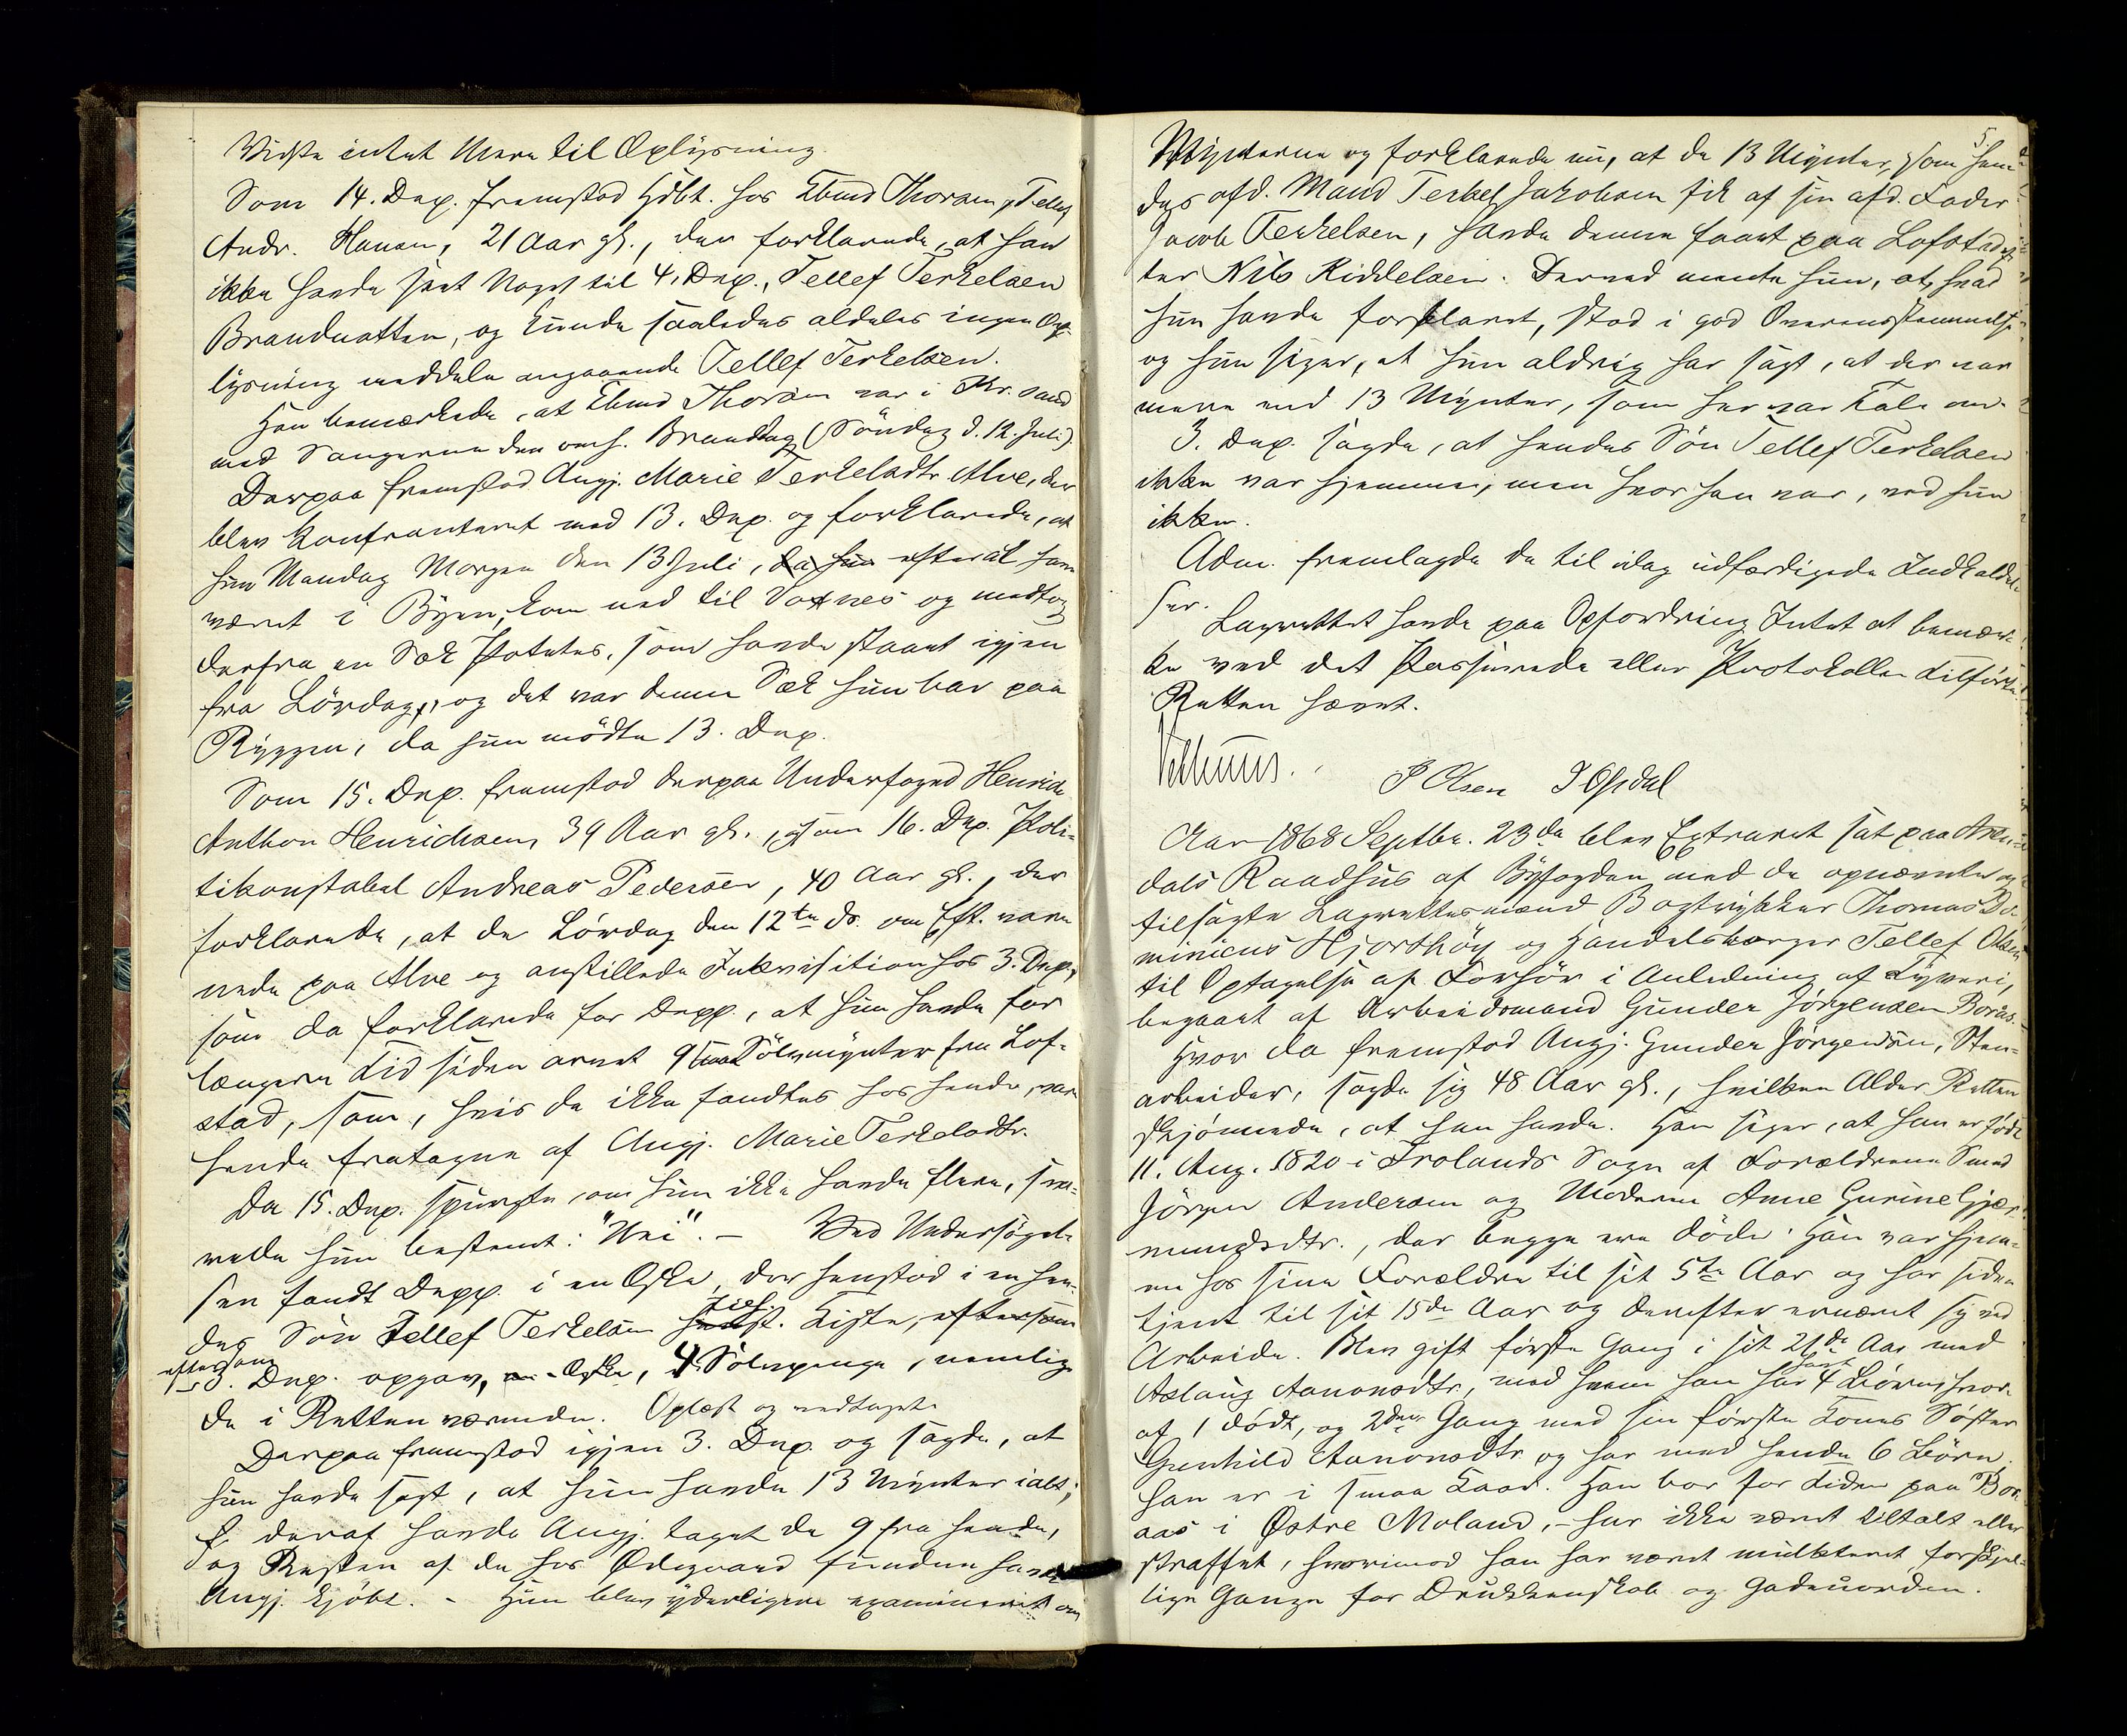 Vidste intet Mere til Oplysning.
Som 14. Dep. fremstod Hdbt. hos Ebend Thorsen, Tellef
Andr. Hansen, 21 Aar gl., der forklarede, at han
ikke havde seet Noget til 4. Dep., Tellef Terkelsen
Brandnatten, og kunde saaledes aldeles ingen Op-
lysning meddele angaaende Tellef Terkelsen.
Han bemærkede, at Ebend Thorsen var i Kr.sand
med Sangerne den omh. Branddag (Söndag d. 12. Juli)
Derpaa fremstod Angj. Marie Terkelsdtr. Alve, der
blev konfronteret med 13. Dep. og forklarede, at
hun Mandag Morgen den 13 Juli, da hun efter at have
været i Byen, kom ned til Vaxnes og medtog
derfra en Sæk Potetes, som havde staaet igjen
fra Lördag, og det var denne Sæk hun bar paa
Ryggen, da hun mödte 13. Dep.
Som 15. Dep. fremstod derpaa Underfoged Henrich
Anthon Henrichsen, 39 Aar gl., og som 16. Dep. Poli-
tikonstabel Andreas Pedersen, 40 Aar gl., der
forklarede, at de Lördag den 12te ds. om Eft. vare
nede paa Alve og anstillede Inkvisition hos 3. Dep.,
som da forklarede for Depp., at hun havde for
længere Tid siden arvet 9 smaa Sölvmynter fra Lof-
stad, som, hvis de ikke fandtes hos hende, vare
hende fratagne af Angj. Marie Terkelsdtr.
Da 15. Dep. spurgte, om hun ikke havde flere, sva-
rede hun bestemt: "Nei". - Ved Undersögel-
sen fandt Depp. i en Æske, der henstod i en hen-
des Sön Tellef Terkelsen tilh. Kiste, eftersom
eftersom
3. Dep. opgav, en Æske, 4 Sölvpenge, nemlig
de i Retten værende. Oplæst og vedtaget.
Derpaa fremstod igjen 3. Dep. og sagde, at
hun havde sagt, at hun havde 13 Mynter ialt;
deraf havde Angj. taget de 9 fra hende,
og Resten af de hos Ödegaard fundne havde
Angj. kjöbt. - Hun blev yderligere examineret om
5
Mynterne og forklarede nu, at de 13 Mynter, som hen-
des afd. Mand Terkel Jakobsen fik af sin afd. Fader
Jacob Terkelsen, havde denne faaet paa Lofstad ef-
ter Nils Kiddelsen. Dermed mente hun, at, hvad
hun havde forklaret, stod i god Overensstemmelse
og hun siger, at hun aldrig har sagt, at der var
mere end 13 Mynter, som her var Tale om.
3. Dep. sagde, at hendes Sön Tellef Terkelsen
ikke var hjemme, men hvor han var, ved hun
ikke.
Adm. fremlagde de til idag udfærdigede Indkaldel-
ser.
Lagrettet havde paa Opfordring Intet at bemær-
ke ved det Passerede eller Protokollen Tilförte
Retten hævet.
P Olsen J Opsdal
Aar 1868 Septbr. 23de blev Extraret sat paa Aren-
dals Raadhus af Byfogden med de opnævnte og
tilsagte Lagrettesmænd Bogtrykker Thomas Do-
minicus Hjorthöy og Handelsborger Tellef Olsen
til Optagelse af Forhör i Anledning af Tyveri,
begaaet af Arbeidsmand Gunder Jörgensen Boraas.
Hvor da fremstod Angj. Gunder Jörgensen, Sten-
arbeider, sagde sig 48 Aar gl., hvilken Alder Retten
skjönnede, at han havde. Han siger, at han er född
11. Aug. 1820 i Frolands Sogn af Forældrene Smed
Jörgen Andersen og Moderen Anne Gurine Gjer-
mundsdtr., der begge ere döde. Han var hjem-
me hos sine Forældre til sit 5te Aar og har siden
tjent til sit 15de Aar og derefter ernæret sig ved
Arbeide. Blev gift förste Gang i sit 21de Aar med
Aslaug Aanonsdtr., med hvem han har havt 4 Börn, hvor-
af 1 dödt, og 2den Gang med sin förste Kones Söster
Gunhild Aanonsdtr. og har med hende 6 Börn.
Han er i smaa Kaar. Han bor for Tiden paa Bor-
aas i Östre Moland, - har ikke været tiltalt eller
straffet, hvorimod han har været mulkteret forskjel-
lige Gange for Drukkenskab og Gadeuorden.